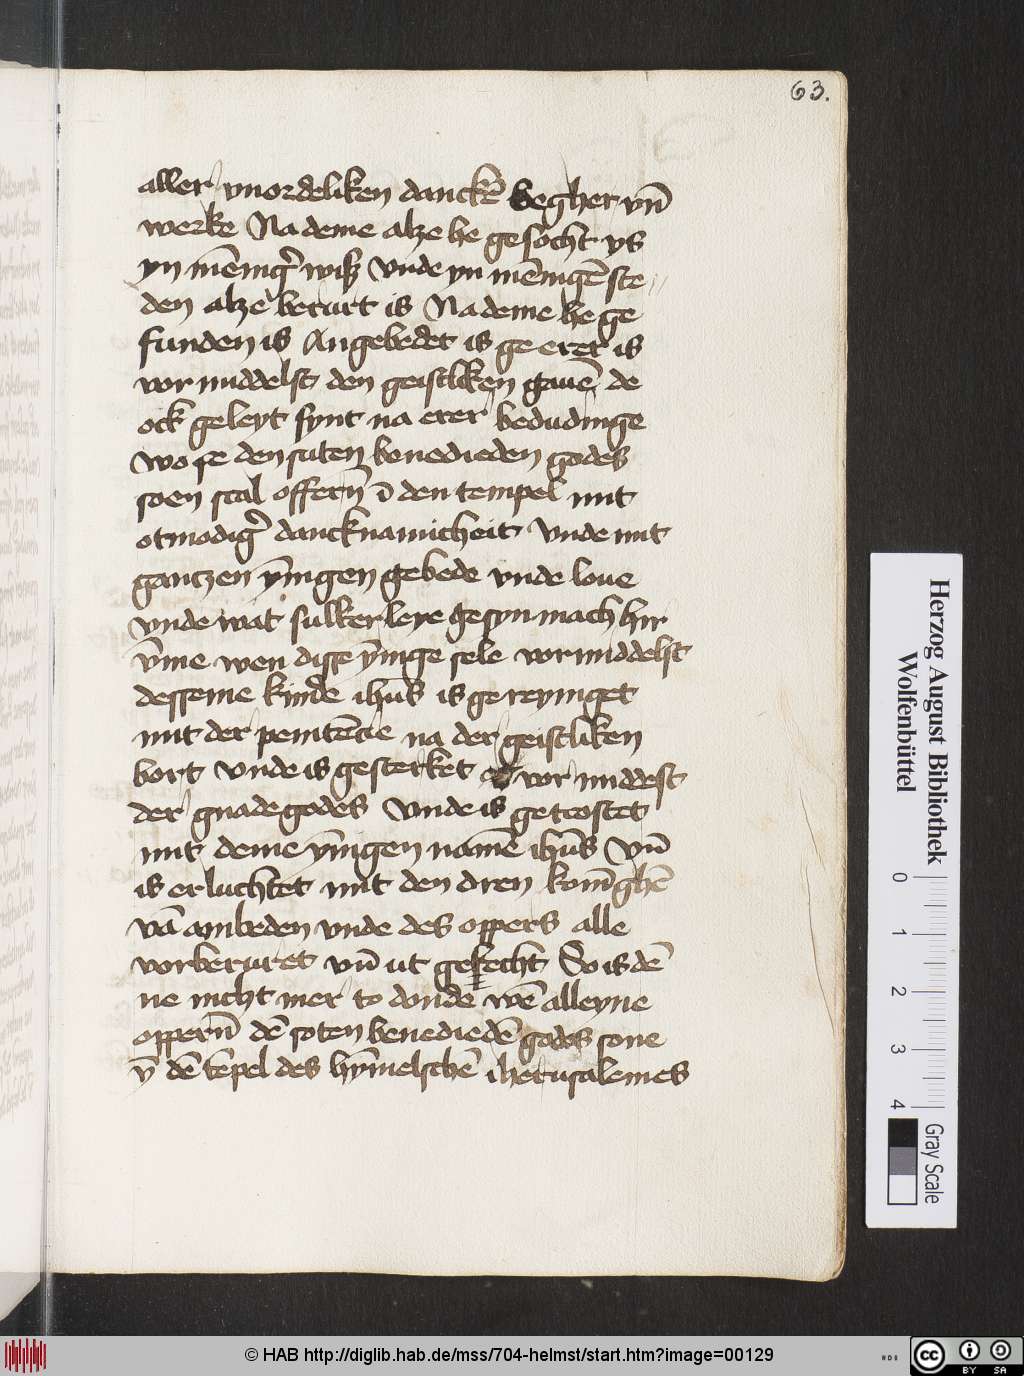 63.
aller vnordeliken danckē begher vn̄
werke Na deme alze he gesocht ys
yn mēnig̉ wisz Vnde yn mēnigē ste
den alze berurt is Na deme he ge
funden is Angebedet is ge eret is
vor middelst den geistliken gauē de
ock geleyt synt na erer bedudinge
wo se den suten benedieden godes
soen scal offern̄ ī den tempel mit
otmodig̉ dancknamicheit Vnde mit
gantzen ȳnigen gebede vnde loue
vnde wat sulkerleye gesyn mach hir
v̄me wen disse ȳnige sele vormiddelst
desseme kinde ihūs is gereyniget
mit der penitēcie na der geistliken
bort Vnde is gesterket vor middest
der gnade godes Vnde is getrostet
mit deme ȳnigen namē ihūs Vn̄
is erluchtet mit den dren konīghē
vā anbeden vnde des oppers alle
vorberuret vn̄ ut gesecht So is dē
ne nicht mer to donde wē alleyne
oppern̄ dē soten benediedē godes sone
ȳ dē tēpel des hȳmelschē iherusalemes
Herzog August Bibliothek
Wolfenbüttel
0 1 2 3 4
Gray Scale
© HAB http://diglib.hab.de/mss/704-helmst/start.htm?image=00129
HAB
cc BY SA